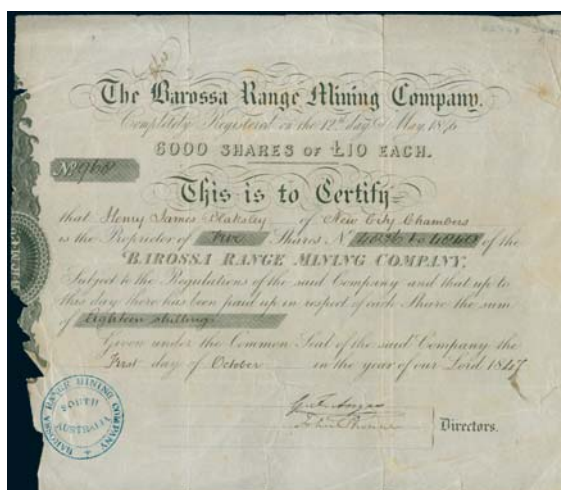 The Barossa Range Mining Company.
Completely Registered on the 12th day of May 184
6000 SHARES OF £10 EACH.
No 968
This is to Certify
that Henry James Blaksley of New City Chambers
is the Proprietor of Five Shares No to of the
BAROSSA RANGE MINING COMPANY,
Subject to the Regulations of the said Company and that up to
this day there has been paid up in respect of each Share the sum
of Eighteen shillings
Given under the Common Seal of the said Company the
First day of October in the year of our Lord 1847
Directors.
B.R.M.Co
BAROSSA RANGE MINING COMPANY
SOUTH
AUSTRALIA